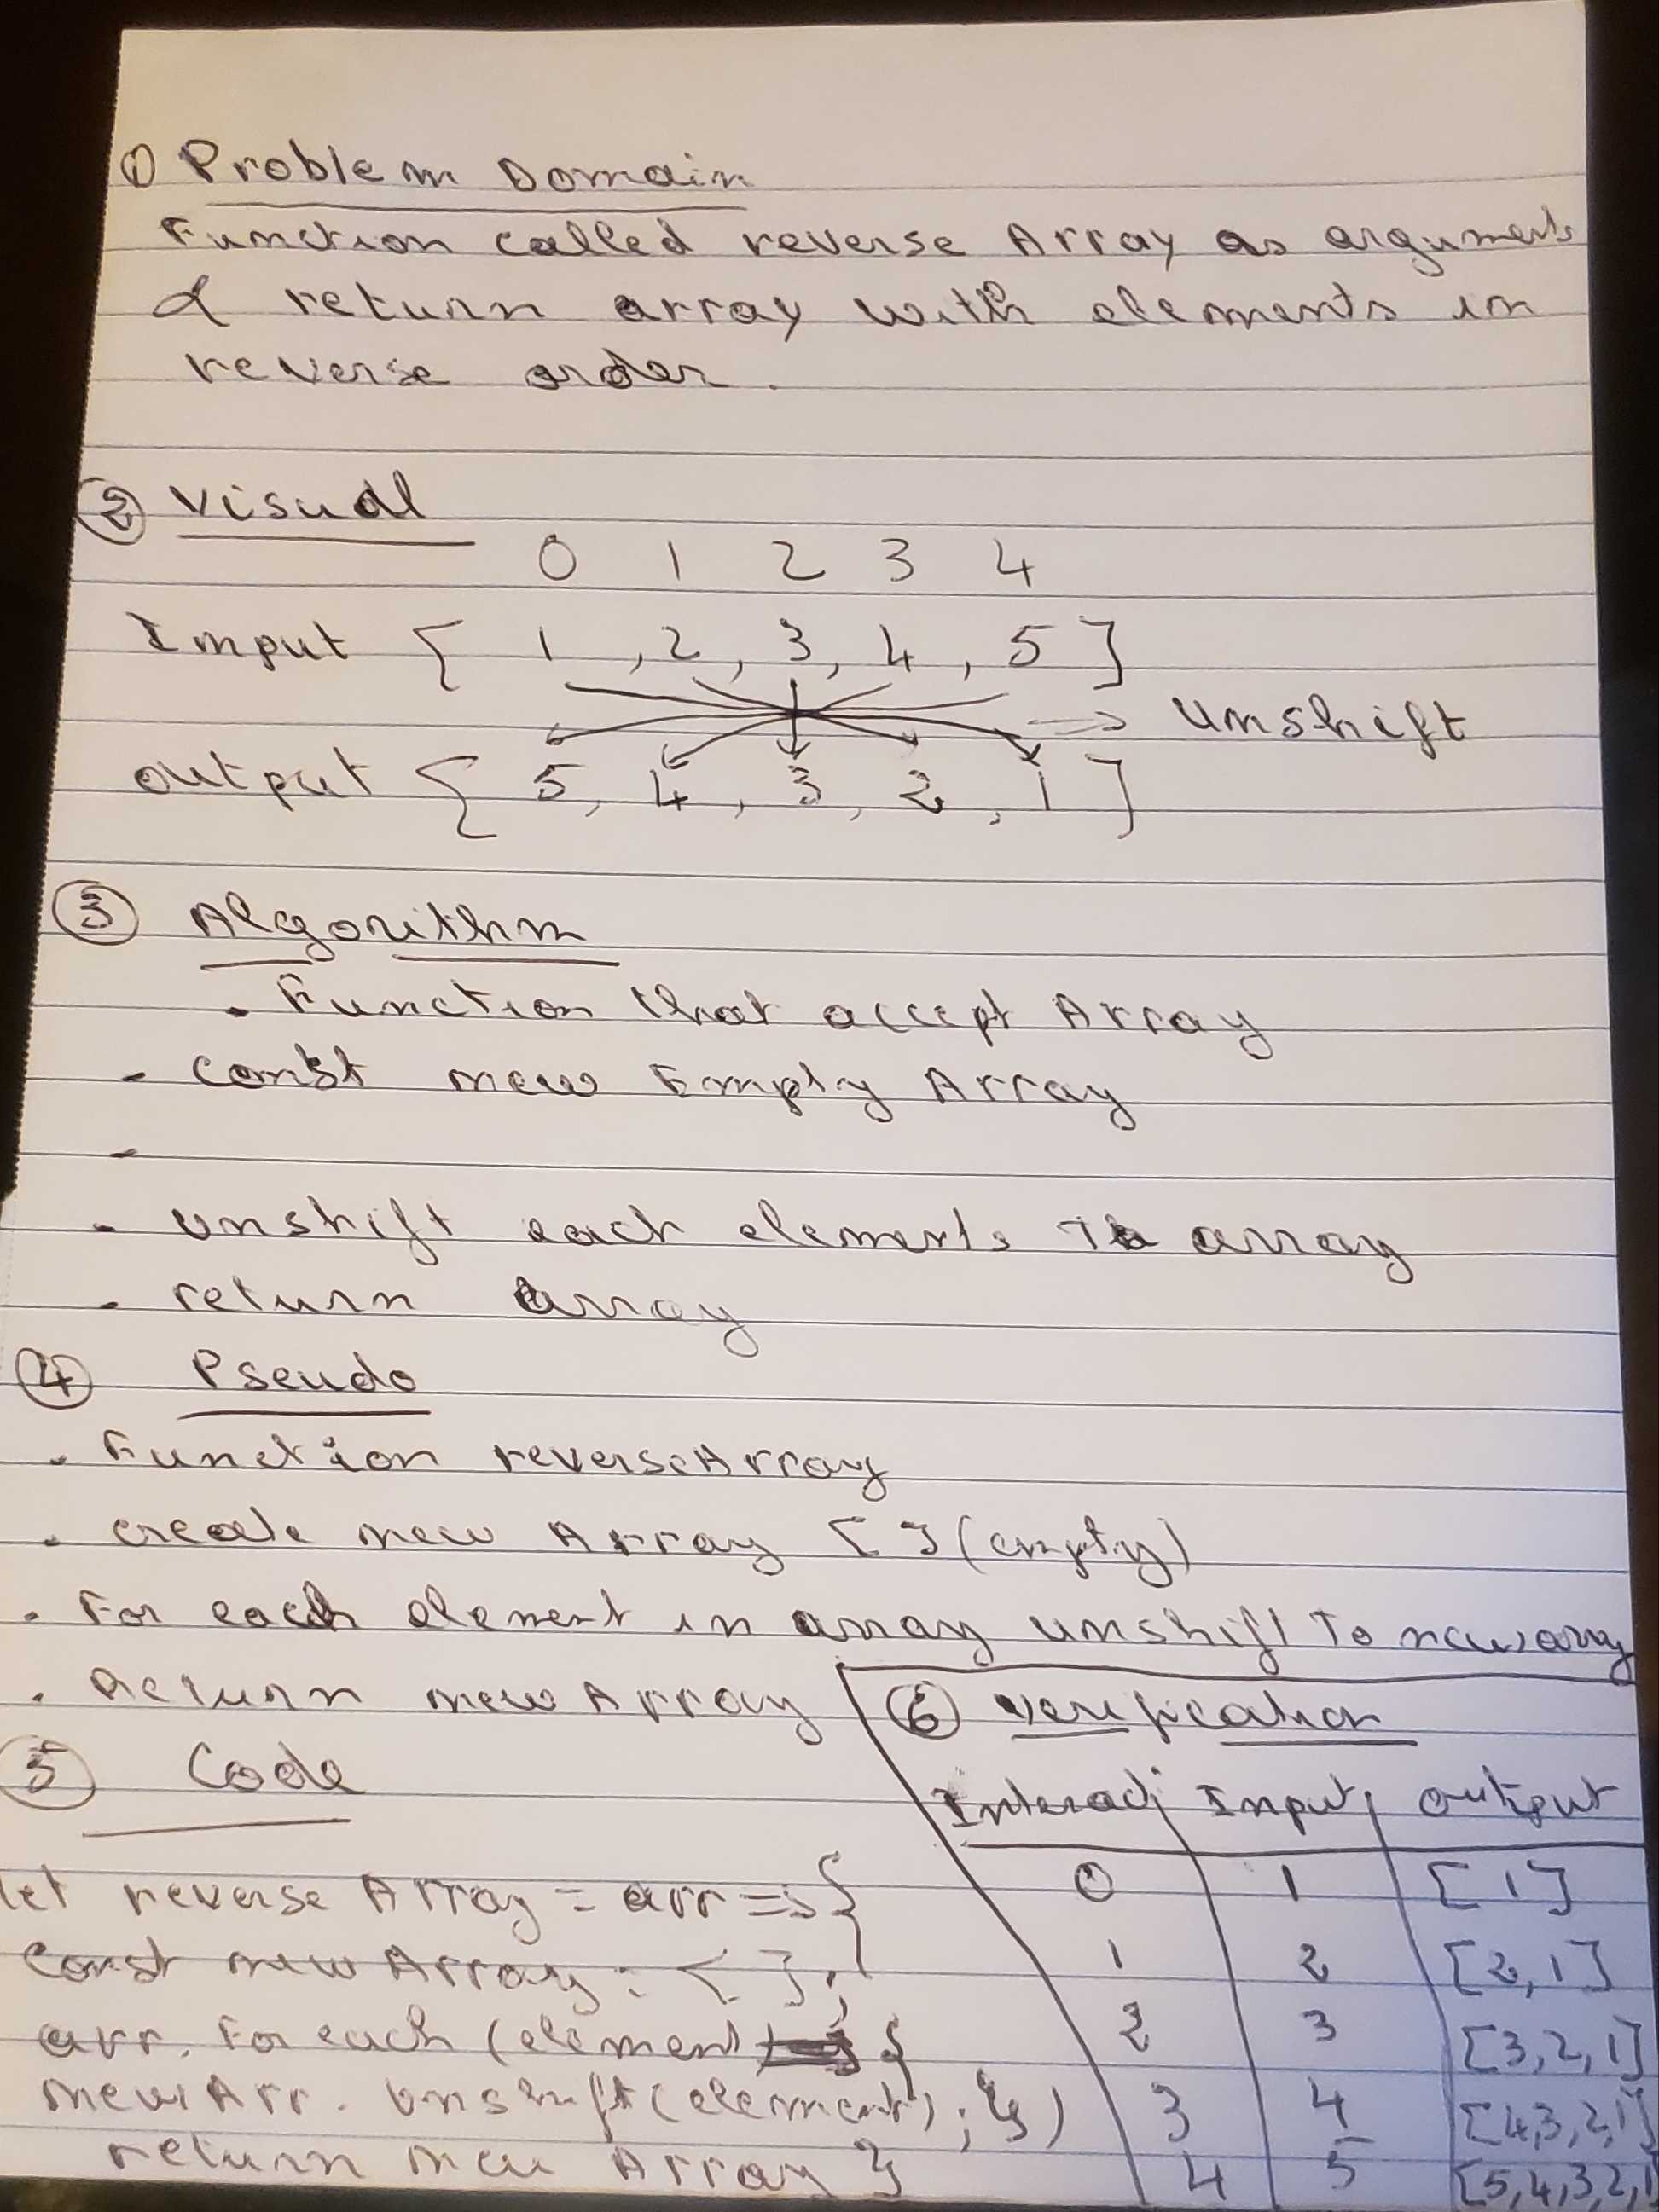 ① Problem Domain
Function called reverse Array as arguments
& return array with elements in
reverse order.
② Visual
0 1 2 3 4
Input [ 1, 2, 3, 4, 5 ]
=> Unshift
output [ 5, 4, 3, 2, 1 ]
③ Algorithm
. Function that accept Array
- const new Empty Array
-
- unshift each elements to array
- return array
④ Pseudo
. Function reverseArray
. create new Array [ ] (empty)
. For each element in array unshift To new array
. Return new Array
⑤ Code
let reverse Array = arr => {
const new Array = [ ];
arr. For each (element {
newArr. Unshift(element); })
return new Array }
⑥ Verification
Input output
0 1 [1]
1 2 [2,1]
2 3 [3,2,1]
3 4 [4,3,2,1]
4 5 [5,4,3,2,1